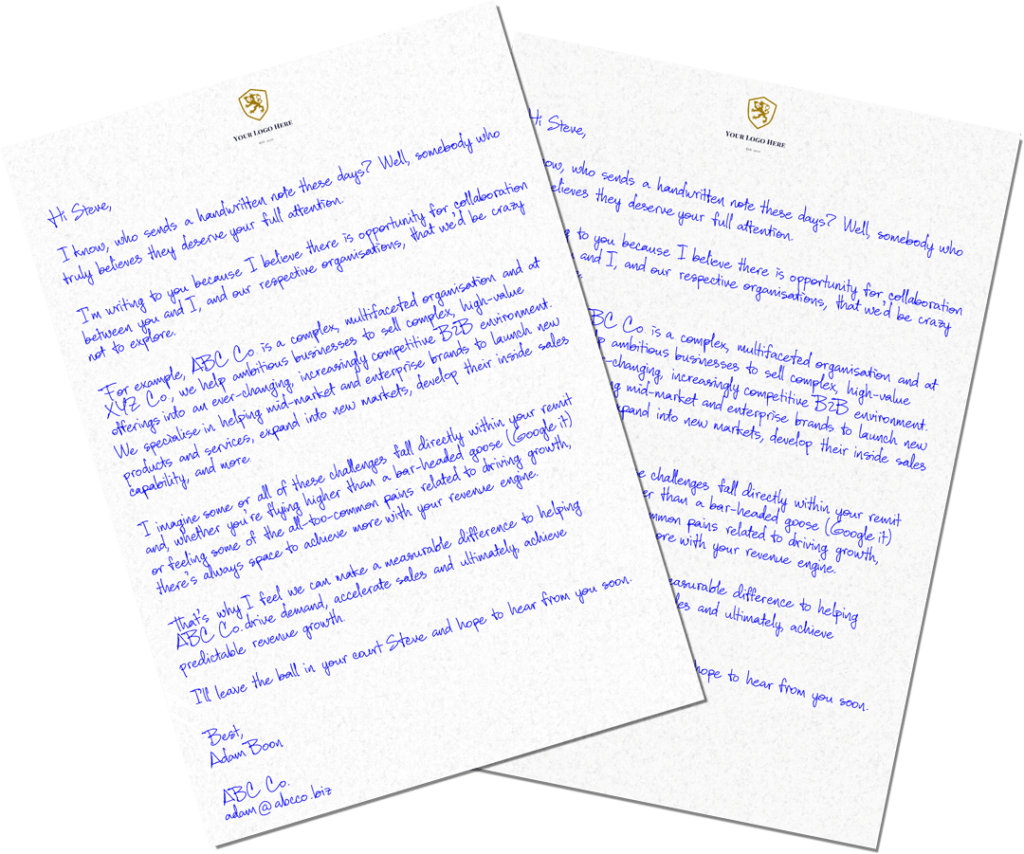 YOUR LOGO HERE
Hi Steve,
I know, who sends a handwritten note these days? Well, somebody who
truly believes they deserve your full attention.
I'm writing to you because I believe there is opportunity for collaboration
between you and I, and our respective organisations, that we'd be crazy
not to explore.
For example, ABC Co is a complex, multifaceted organisation and at
XYZ Co, we help ambitious businesses to sell complex, high-value
offerings into an ever-changing, increasingly competitive B2B environment.
We specialise in helping mid-market and enterprise brands to launch new
products and services, expand into new markets, develop their inside sales
capability, and more.
I imagine some or all of these challenges fall directly within your remit
and, whether you're flying higher than a bar-headed goose (Google it)
or feeling some of the all-too-common pains related to driving growth,
there's always space to achieve more with your revenue engine.
That's why I feel we can make a measurable difference to helping
ABC Co. drive demand, accelerate sales and ultimately, achieve
predictable revenue growth.
I'll leave the ball in your court Steve and hope to hear from you soon.
Best,
Adam Boon
ABC Co.
adam@abcco.biz
YOUR LOGO HERE
Hi Steve,
know, who sends a handwritten note these days? Well, somebody who
believes they deserve your full attention.
to you because I believe there is opportunity for collaboration
and I, and our respective organisations, that we'd be crazy
BC Co is a complex, multifaceted organisation and at
ambitious businesses to sell complex, high-value
changing, increasingly competitive B2B environment.
mid-market and enterprise brands to launch new
expand into new markets, develop their inside sales
challenges fall directly within your remit
than a bar-headed goose (Google it)
common pains related to driving growth,
with your revenue engine.
measurable difference to helping
and ultimately, achieve
hope to hear from you soon.